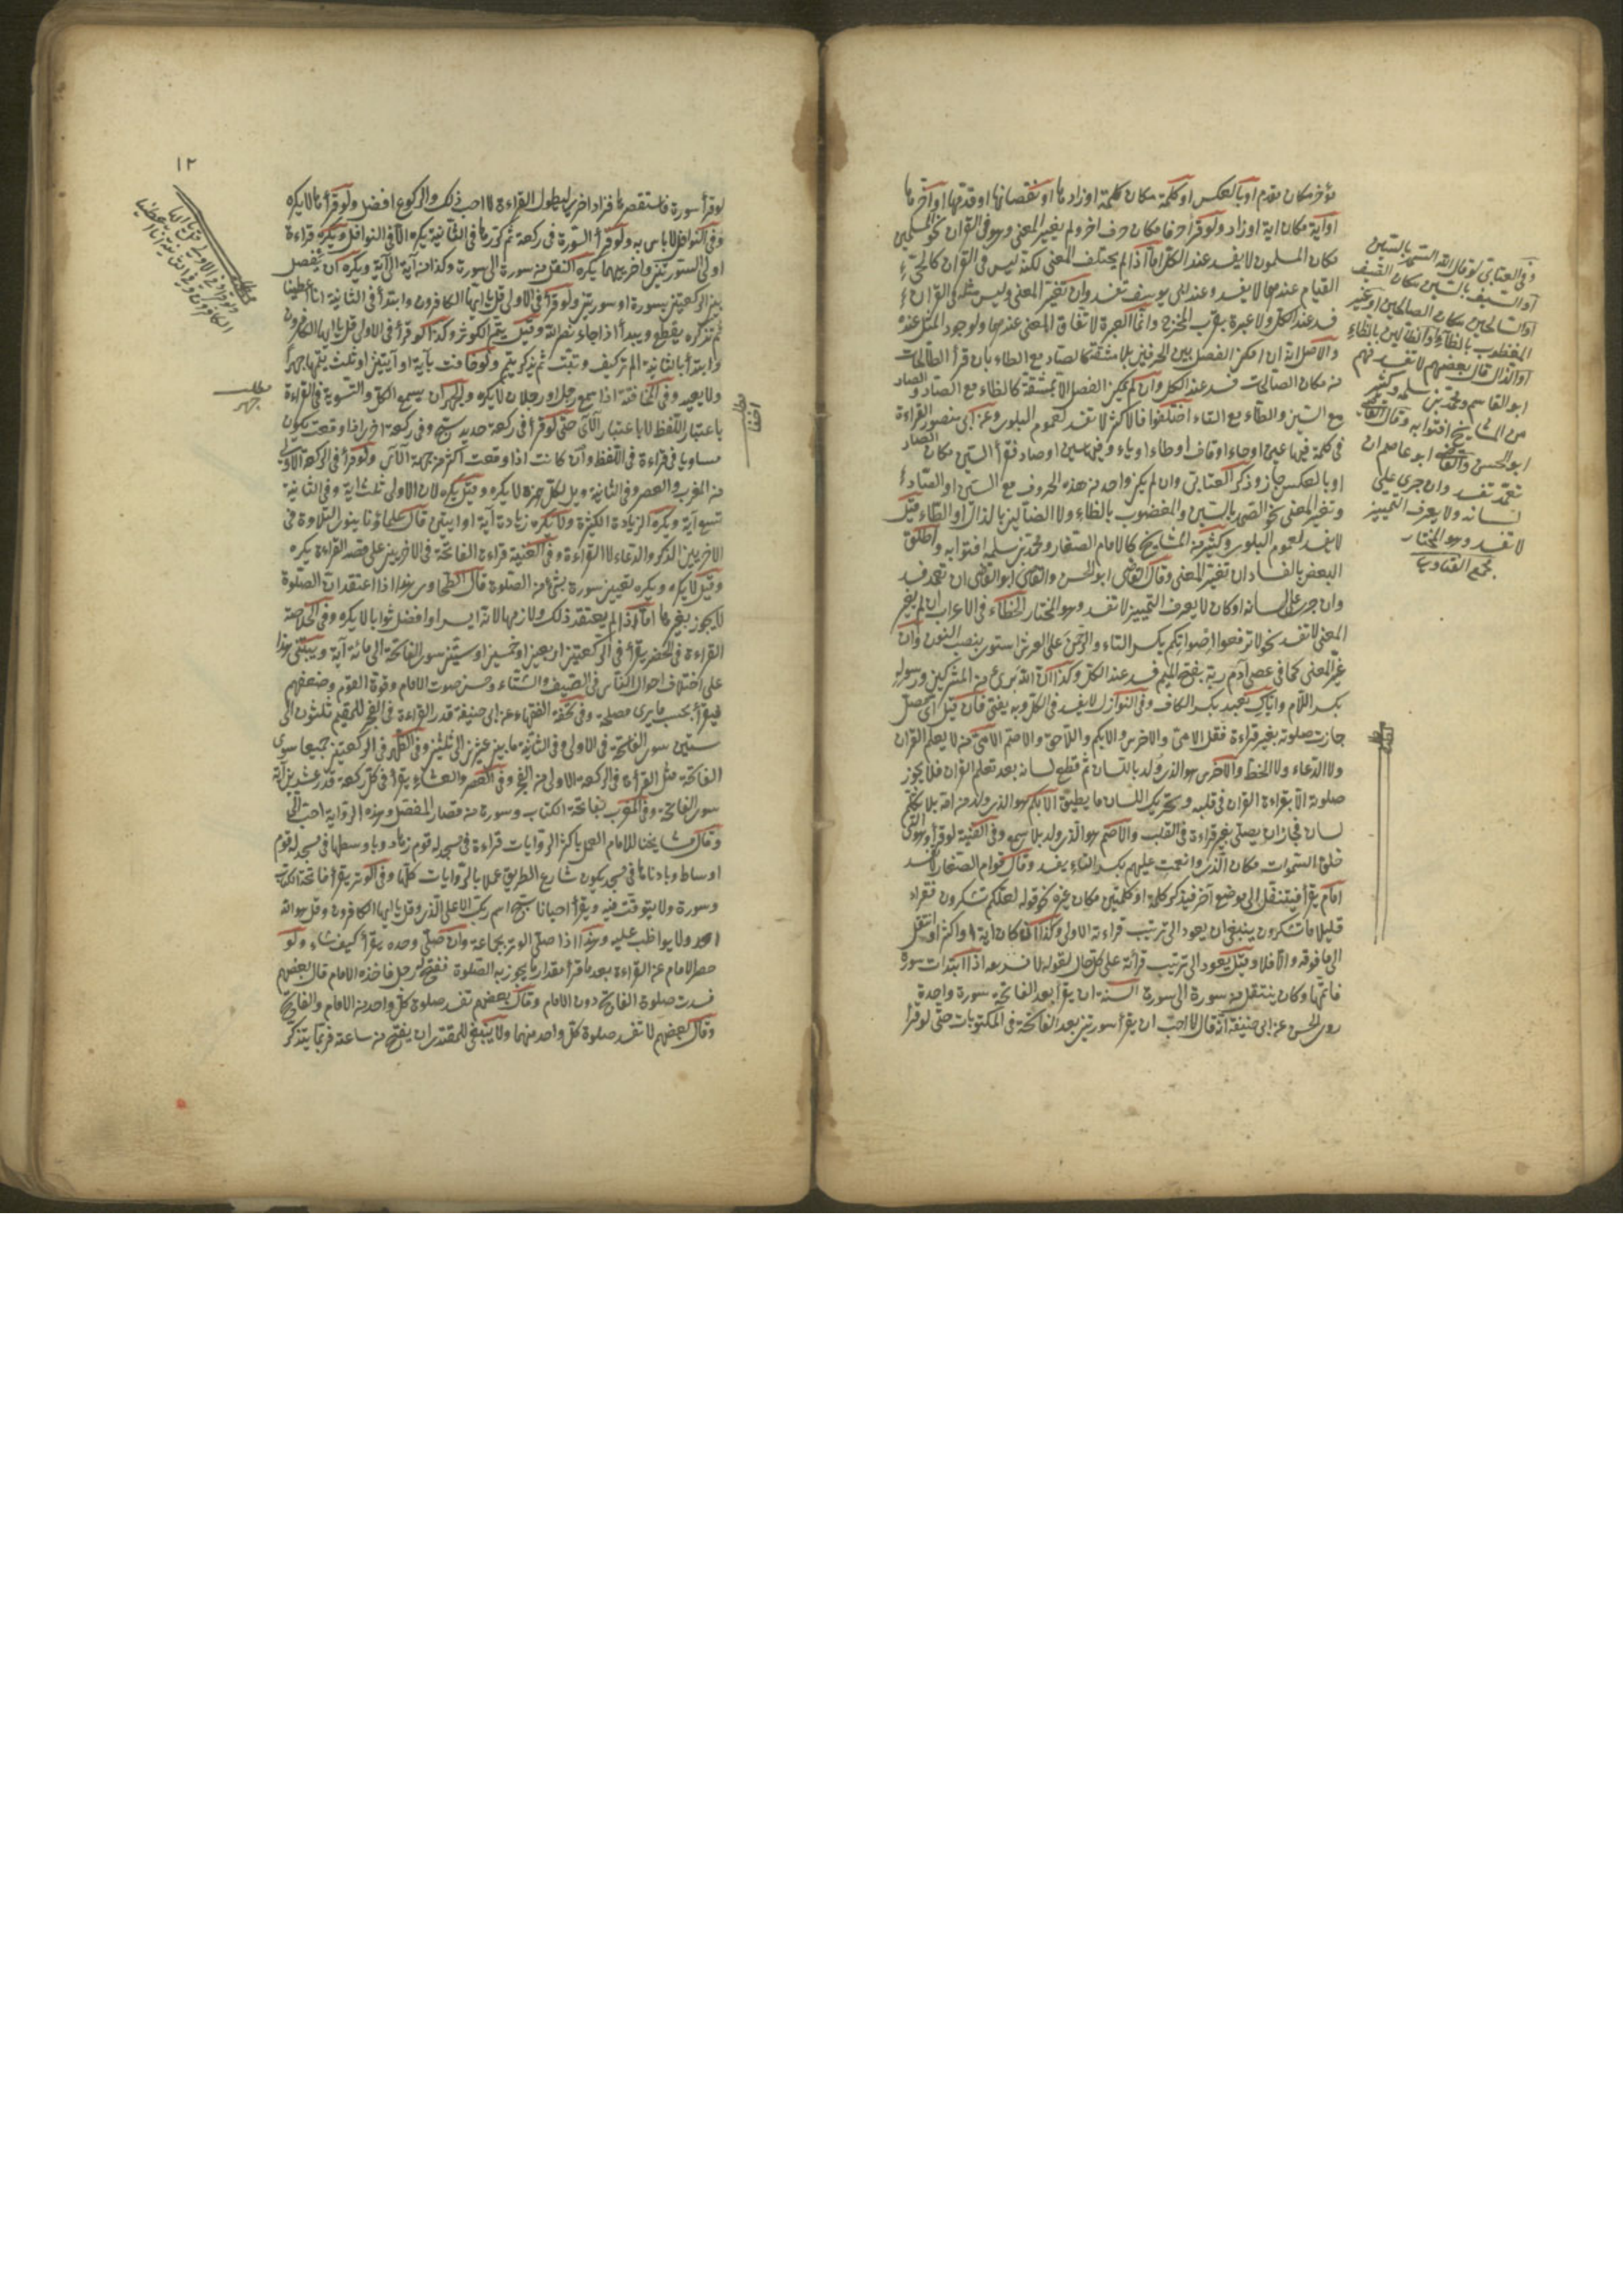 مؤخر مكان مقدم او بالعكس او كلمة مكان كلمة او زادها او نقصانها او قدمها او اخرها
او آية مكان اية او زاد ولو قرأ حرفا مكان حرف اخر ولم يتغير المعنى وهو فى القران نحو المسلمين
مكان المسلمون لا يفسد عند الكل اما اذا لم يختلف المعنى لكنه ليس فى القران كالحى
القيام عندهما لا يفسد وعند ابى يوسف تفسد وان تغير المعنى وليس مثله فى القران
فسد عند الكل ولا عبرة بقرب المخرج وانما العبرة لاتفاق المعنى عندهما ولوجود المثل عنده
والاصل انه ان امكن الفصل بين الحرفين بلا مشقة كالصاد مع الطاء بان قرأ الطالحات
مكان الصالحات فسد عند الكل وان لم يمكن الفصل الا بمشقة كالظاء مع الضاد والصاد
مع السين والطاء مع التاء اختلفوا فالاكثر لا تفسد لعموم البلوى وعن ابى منصور القراءة
فى كلمة فيها عين او حاء او قاف او طاء او ياء وفيها سين او صاد فقرأ السين مكان الصاد
او بالعكس جاز وذكر العتابى وان لم يكن واحد من هذه الحروف مع السين او الصاد
وتغير المعنى نحو الصمد بالسين والمغضوب بالظاء ولا الضالين بالذال او الظاء قيل
لا يفسد لعموم البلوى وكثير من المشايخ كالامام الصفار ومحمد بن سلمه افتوا به واطلق
البعض بالفساد ان تغير المعنى وقال القاضى ابو الحسن والقاضى ابو القاسم ان تعمد فسد
وان جرى على لسانه او كان لا يعرف التمييز لا تفسد وهو المختار الخطاء فى الاعراب ان لم يغير
المعنى لا تفسد نحو لا ترفعوا اصواتكم بكسر التاء والرحمن على العرش استوى بنصب النون وان
غير المعنى كما فى عصى آدم ربه بفتح الميم فسد عند الكل وكذا ان الله برئ من المشركين ورسوله
بكسر اللام واياك نعبد بكسر الكاف وفى النوازل لا يفسد فى الكل وبه يفتى فان قيل اى مصل
جازت صلوته بغير قراءة فقل الامى والاخرس والابكم واللاحق والاصم الامى من لا يعلم القران
ولا الدعاء ولا الخط والاخرس هو الذى ولد باللسان ثم قطع لسانه بعد تعلم القران فلا يجوز
صلوته الا بقراءة القران فى قلبه وبتحريك اللسان ما يطيق الابكم هو الذى ولد من امه بلا تكلم
لسان فجاز ان يصلى بغير قراءة فى القلب والاصم هو الذى ولد بلا سمع وفى القنية لو قرأ وهو التى
خلق السموات مكان الذى وانعمت عليهم بكسر التاء يفسد وقال قوام الصفار لا تفسد
امام يقرأ فينتقل الى موضع آخر فيذكر كلمة او كلمتين مكان غيره نحو قوله لعلكم تشكرون فقراء
قليلا ما تشكرون ينبغى ان يعود الى ترتيب قراءته الاولى وكذا ان كان اية واكثر او انتقل
الى ما فوقه والا فلا وقيل يعود الى ترتيب قرائة على كل حال لقوله اذا ابتدات سورة
فاتمها وكان ينتقل من سورة الى سورة السنة ان يقرأ بعد الفاتحة سورة واحدة
روى الحسن عن ابى حنيفة انه قال لا احب ان يقرأ سورتين بعد الفاتحة فى المكتوبات حتى لو قرأ
وفى العتابى لو قال الله السمد بالسين
او السيف بالسين مكان الصيف
او السالحين مكان الصالحين او غير
المغظوب بالظاء او الظالين بالظاء
او الذال قال بعضهم لا تفسد منهم
ابو القاسم ومحمد بن سلمه وكثير
من المشايخ افتوا به وقال القاضى
ابو الحسن والقاضى ابو عاصم ان
تعمد تفسد وان جرى على
لسانه ولا يعرف التمييز
لا تفسد وهو المختار
مجمع الفتاوى
١٢
لو قرأ سورة فاستقصرها فزاد اخرى ليطول القراءة لا احب ذلك والركوع افضل ولو قرأها لا يكره
وفى النوافل لا باس به ولو قرأ السورة فى ركعة ثم كررها فى الثانية يكره الا فى النوافل ويكره قراءة
اولى السورتين واخريهما يكره التنقل من سورة الى سورة وكذا من آية الى آية ويكره ان يفصل
بين الركعتين بسورة او سورتين ولو قرأ فى الاولى قل يا ايها الكافرون وابتدأ فى الثانية انا اعطينا
ثم تذكره يقطع ويبدأ اذا جاء نصر الله وقيل يتم الكوثر وكذا لو قرأ فى الاولى قل يا ايها الكافرون
وابتدأ بالثانية الم تر كيف وتبت ثم يذكر يتم ولو خافت بآية او آيتين او ثلث يتمها جهرا
ولا يعيد وفى المخافتة اذا سمع رجل او رجلان لا يكره والجهر ان يسمع الكل والتسوية فى القراءة
باعتبار اللفظ لا باعتبار الآى حتى لو قرأ فى ركعة حديد سبح وفى ركعة اخرى اذا وقعت يكون
مساويا فى قراءة فى اللفظ وان كانت اذا وقعت اكثر من جهة الآى ولو قرأ فى الركعة الاولى
من المغرب والعصر وفى الثانية ويل لكل همزة لا يكره وقيل يكره لان الاولى ثلث اية وفى الثانية
تسع آية ويكره الزيادة الكثيرة ولا تكره زيادة آية او ايتين قال علماؤنا ينوى التلاوة فى
الاخريين الذكر والدعاء لا القراءة وفى الغنية قراءة الفاتحة فى الاخريين على قصد القراءة يكره
وقيل لا يكره ويكره تعيين سورة بشئ من الصلوة قال الطحاوى هذا اذا اعتقد ان الصلوة
لا يجوز بغيرها اما اذا لم يعتقد ذلك ولازمها لانه ايسر او افضل ثوابا لا يكره وفى الخلاصة
القراءة فى الحضر يقرأ فى الركعتين اربعين او خمسين او ستين سوى الفاتحة الى مائة آية ويبتنى هذا
على اختلاف احوال الناس فى الصيف والشتاء وحسن صوت الامام وقوة القوم وضعفهم
فيقرأ بحسب ما يرى مصلحة وفى تحفة الفقهاء عن ابى حنيفة قدر القراءة فى الفجر للمقيم ثلثون الى
ستين سوى الفاتحة فى الاولى وفى الثانية ما بين عشرين الى ثلثين وفى الظهر فى الركعتين جميعا سوى
الفاتحة مثل القراءة فى الركعة الاولى من الفجر وفى العصر والعشاء يقرأ فى كل ركعة قدر عشرين آية
سوى الفاتحة وفى المغرب بفاتحة الكتاب وسورة من قصار المفصل وهذه الرواية احب الى
وقال مشايخنا للامام العمل باكثر الروايات قراءة فى مسجد له قوم زهاد وباوسطها فى مسجد له قوم
اوساط وبادناها فى مسجد يكون شارع الطريق عملا بالروايات كلها وفى الوتر يقرأ فاتحة الكتاب
وسورة ولا يتوقت فيه ويقرأ احيانا سبح اسم ربك الاعلى الذى وقل يا ايها الكافرون وقل هو الله
احد ولا يواظب عليه وهذا اذا صلى الوتر بجماعة وان صلى وحده يقرأ كيف شاء ولو
حصر الامام عن القراءة بعد ما قرأ مقدار ما يجوز به الصلوة ففتح رجل فاخذه الامام قال بعضهم
فسدت صلوة الفاتح دون الامام وقال بعضهم تفسد صلوة كل واحد من الامام والفاتح
وقال بعضهم لا تفسد صلوة كل واحد منهما ولا ينبغى للمقتدى ان يفتح من ساعته فربما يتذكر
مطلب
ويقرأ فى الاولى قل يا ايها
الكافرون وفى الثانية انا اعطينا
مطلب
جهر
مطلب
اخفا